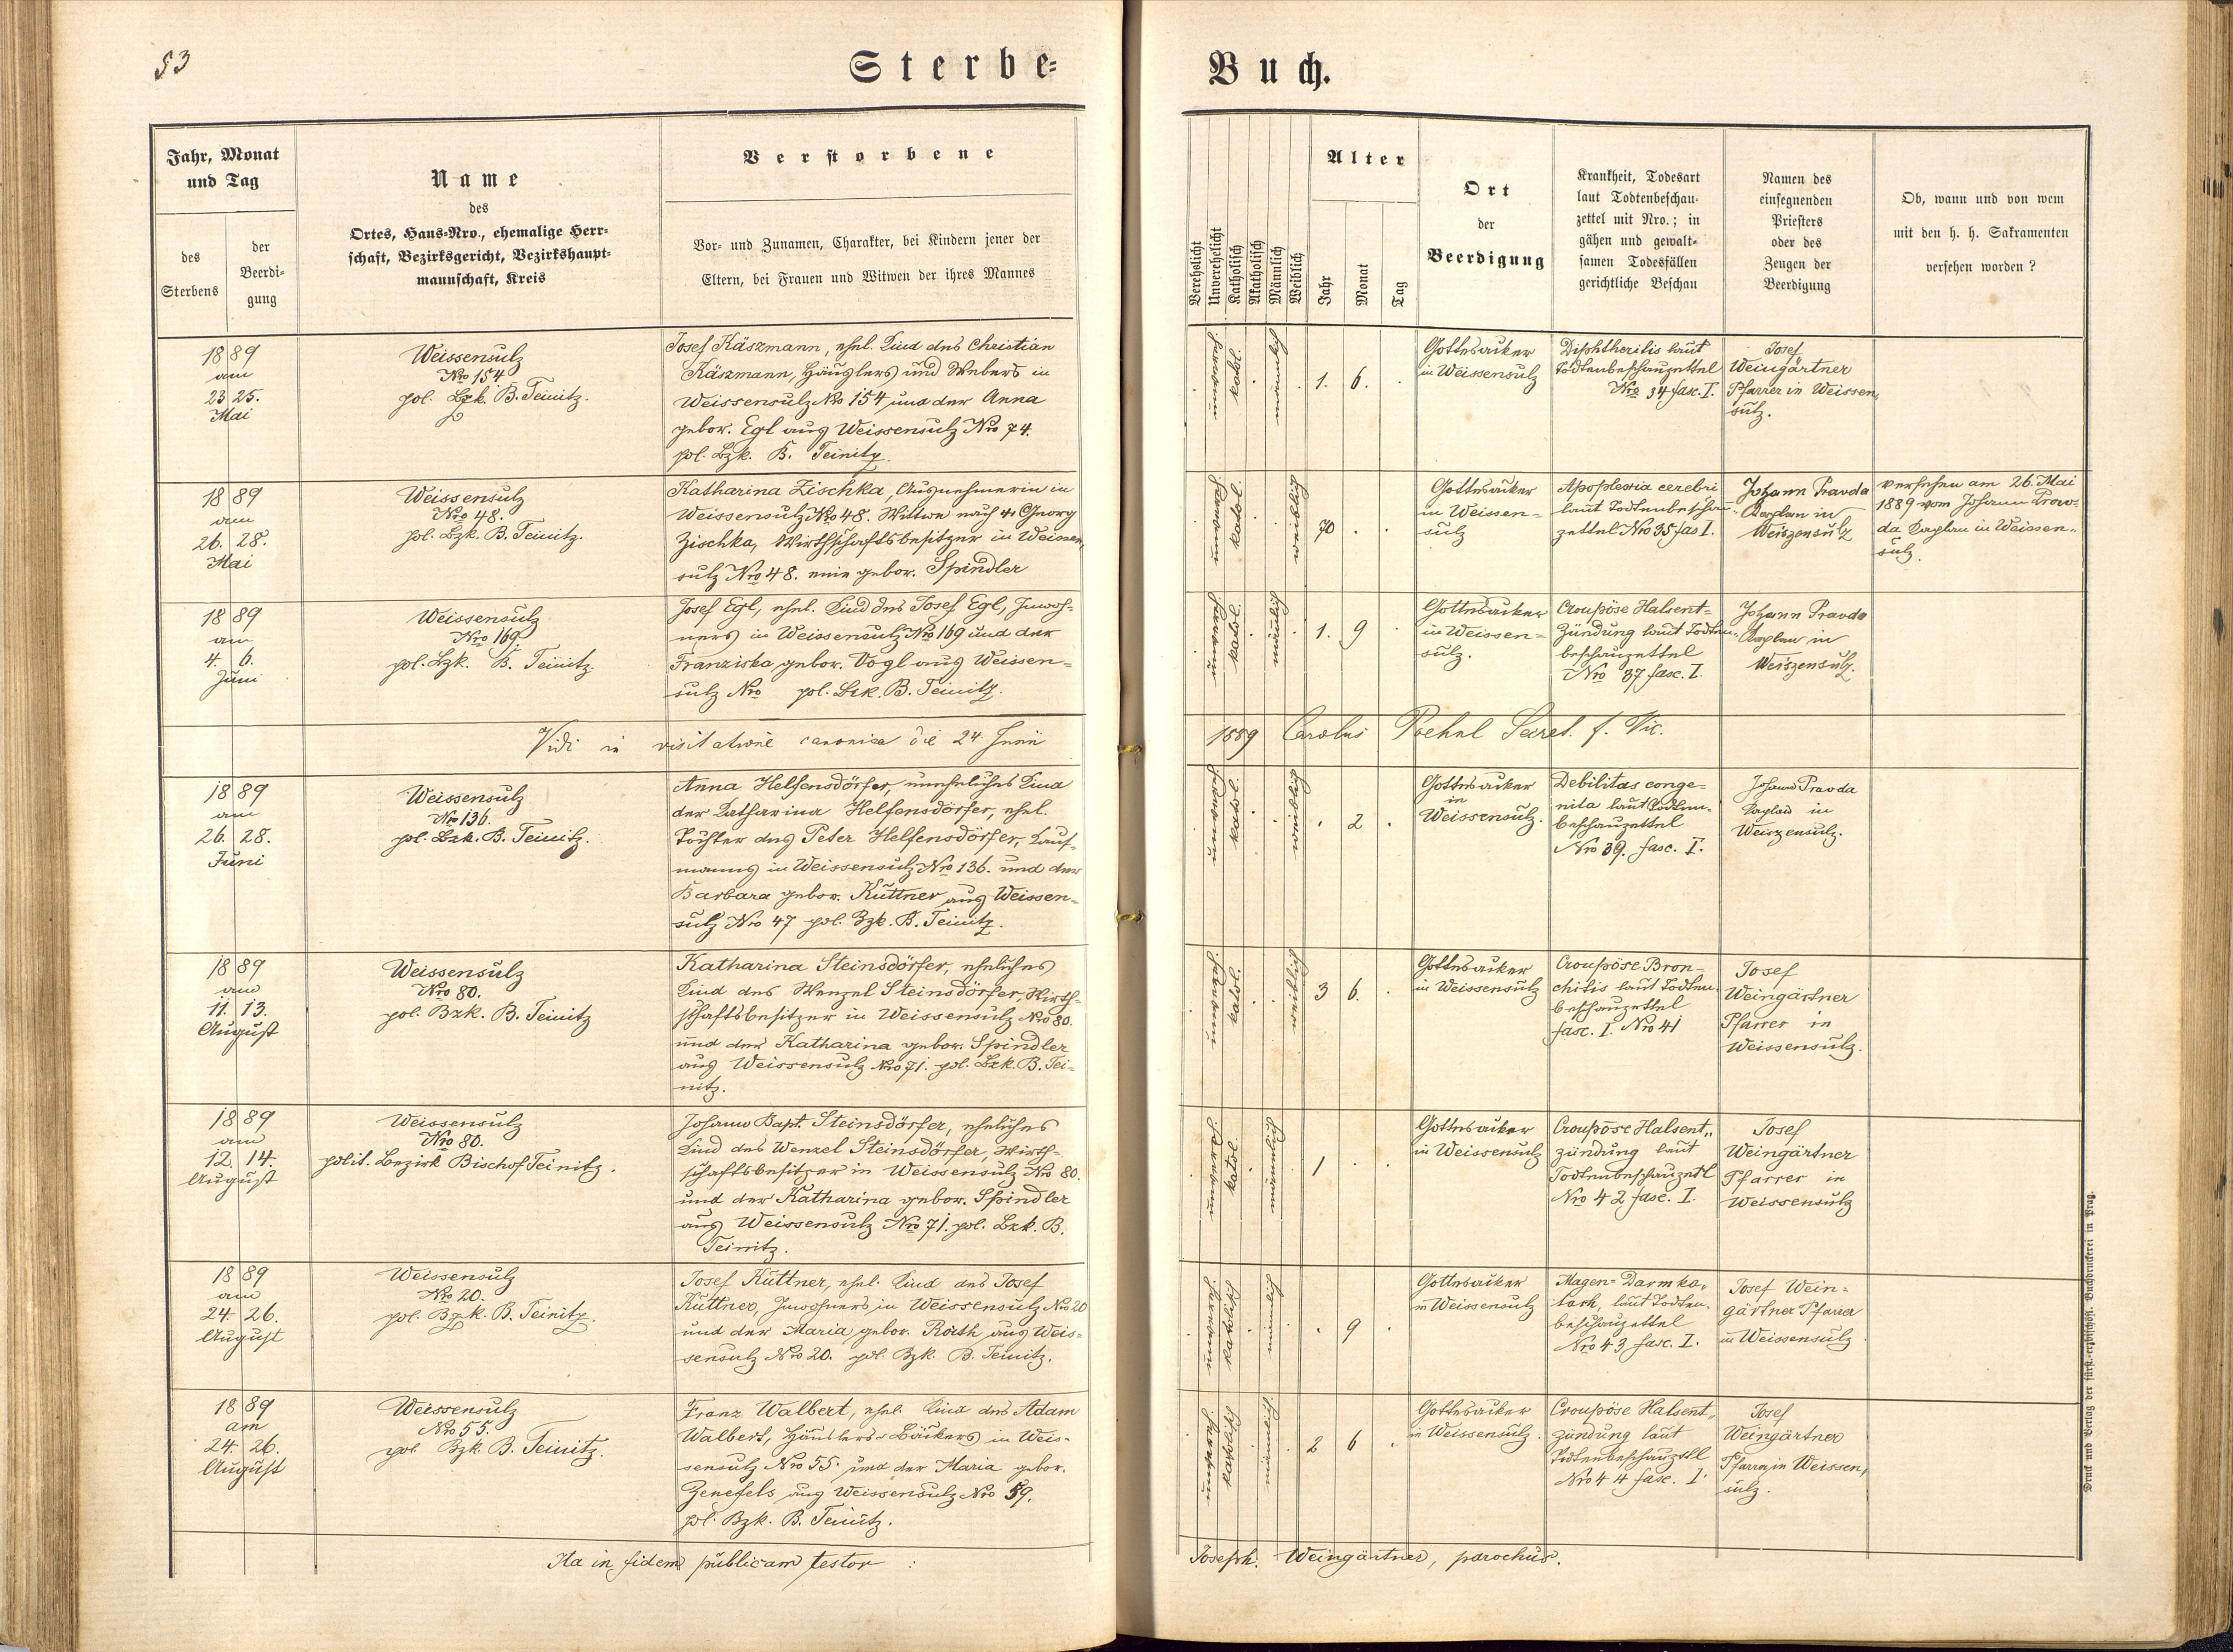 53
Sterbe=
Buch.
Jahr, Monat
und Tag
des
Sterbens
der
Beerdi=
gung
Name
des
Ortes, Haus=Nro., ehemalige Herr=
schaft, Bezirksgericht, Bezirkshaupt=
mannschaft, Kreis
Verstorbene
Vor= und Zunamen, Charakter, bei Kindern jener der
Eltern, bei Frauen und Witwen der ihres Mannes
Verehelicht
Unverehelicht
Katholisch
Akatholisch
Männlich
Weiblich
Alter
Jahr
Monat
Tag
Ort
der
Beerdigung
Krankheit, Todesart
laut Todtenbeschau=
zettel mit Nro.; in
gähen und gewalt=
samen Todesfällen
gerichtliche Beschau
Namen des
einsegnenden
Priesters
oder des
Zeugen der
Beerdigung
Ob, wann und von wem
mit den h. h. Sakramenten
versehen worden?
1889
am
23 25.
Mai
Weissensulz
Nro 154
pol. Bzk. B. Teinitz.
Josef Käszmann, ehel. Kind des Christian
Käszmann, Häuslers und Webers in
Weissensulz Nro 154 und der Anna
gebor. Egl aus Weissensulz Nro 74.
pol. Bzk. B. Teinitz.
kathol.
männlich
1. 6.
Gottesacker
in Weissensulz
Diphtheritis laut
Todtenbeschauzettel
Nro 34 fasc. I.
Josef
Weingärtner
Pfarrer in Weissen,
sulz.
1889
am
26. 28.
Mai
Weissensulz
Nro 48.
pol. Bzk. B. Teinitz.
Katharina Zischka, Ausnehmerin in
Weissensulz Nro 48. Wittwe nach + Georg
Zischka, Wirthschaftsbesitzer in Weissen,
sulz Nro 48. eine gebor. Spindler
kathol.
weiblich
70
Gottesacker
in Weissen=
sulz
Apoplexia cerebri
laut Todtenbeschau=
zettel Nro 35 fas I.
Johann Pravda
Kaplan in
Weiszensulz
versehen am 26. Mai
1889 vom Johann Prav=
da Kaplan in Weissen=
sulz.
1889
am
4. 6.
Juni
Weissensulz
Nro 169
pol. Bzk. B. Teinitz.
Josef Egl, ehel. Kind des Josef Egl, Inwoh=
ners in Weissensulz Nro 169 und der
Franziska gebor. Vogl aus Weissen=
sulz Nro pol. Bzk. B. Teinitz.
kathol.
männlich
1. 9
Gottesacker
in Weissen=
sulz.
Croupöse Halsent=
zündung laut Todten,
beschauzettel
Nro 37 fasc. I.
Johann Pravda
Kaplan in
Weiszensulz.
Vidi in visitatione canonica die 24 Junii
1889 Carolus Poehnl Secret. f. Vic.
1889
am
26. 28.
Juni
Weissensulz
Nro 136.
pol. Bzk. B. Teinitz.
Anna Helfensdörfer, uneheliches Kind
der Katharina Helfensdörfer, ehel.
Tochter des Peter Helfensdörfer, Kauf=
manns in Weissensulz Nro 136. und der
Barbara gebor. Küttner aus Weissen=
sulz Nro 47 pol. Bzk. B. Teinitz.
kathol.
weiblich
2
Gottesacker
in
Weissensulz.
Debilitas conge=
nita laut Todten=
beschauzettel
Nro 39. fasc. I.
Johann Pravda
Kaplan in
Weiszensulz.
1889
am
11. 13.
August
Weissensulz
Nro 80.
pol. Bzk. B. Teinitz
Katharina Steinsdörfer, eheliches
Kind des Wenzel Steinsdörfer, Wirth=
schaftsbesitzer in Weissensulz Nro 80.
und der Katharina gebor. Spindler
aus Weissensulz Nro 71. pol. Bzk. B. Tei=
nitz.
kathol.
weiblich
3 6.
Gottesacker
in Weissensulz
Croupöse Bron=
chitis laut Todten
beschauzettel
fasc. I. Nro 41
Josef
Weingärtner
Pfarrer in
Weissensulz.
1889
am
12. 14.
August
Weissensulz
Nro 80.
polit. Bezirk Bischof Teinitz.
Johann Bapt. Steinsdörfer, eheliches
Kind des Wenzel Steinsdörfer, Wirth=
schaftsbesitzer in Weissensulz Nro 80.
und der Katharina gebor. Spindler
aus Weissensulz Nro 71. pol. Bzk. B.
Teinitz.
kathol.
männlich
1
Gottesacker
in Weissensulz
Croupöse Halsent,,
zündung laut
Todtenbeschauzetl
Nro 42 fasc. I.
Josef
Weingärtner
Pfarrer in
Weissensulz
1889
am
24. 26.
August
Weissensulz
Nro 20.
pol. Bzk. B. Teinitz.
Josef Küttner, ehel. Kind des Josef
Küttner, Inwohners in Weissensulz Nro 20
und der Maria gebor. Roith aus Weis=
sensulz Nro 20. pol. Bzk. B. Teinitz.
katholisch
männlich
9
Gottesacker
in Weissensulz
Magen= Darmka,
tarh, laut Todten,
beschauzettel
Nro 43 fasc. I.
Josef Wein=
gärtner Pfarrer
in Weissensulz
1889
am
24. 26.
August
Weissensulz
Nro 55.
pol. Bzk. B. Teinitz.
Franz Walbert, ehel. Kind des Adam
Walbert, Häuslers Bäckers in Weis=
sensulz Nro 55. und der Maria gebor.
Zenefels aus Weissensulz Nro 59.
pol. Bzk. B. Teinitz.
katholisch
männlich
2 6
Gottesacker
in Weissensulz.
Croupöse Halsent,
zündung laut
Todtenbeschauzttl
Nro 44 fasc. I.
Josef
Weingärtner
Pfarrer in Weissen,
sulz.
Ita in fidem publicam testor :
Joseph. Weingärtner, parochus.
Druck und Verlag der fürst.=erzbischöfl. Buchdruckerei in Prag.